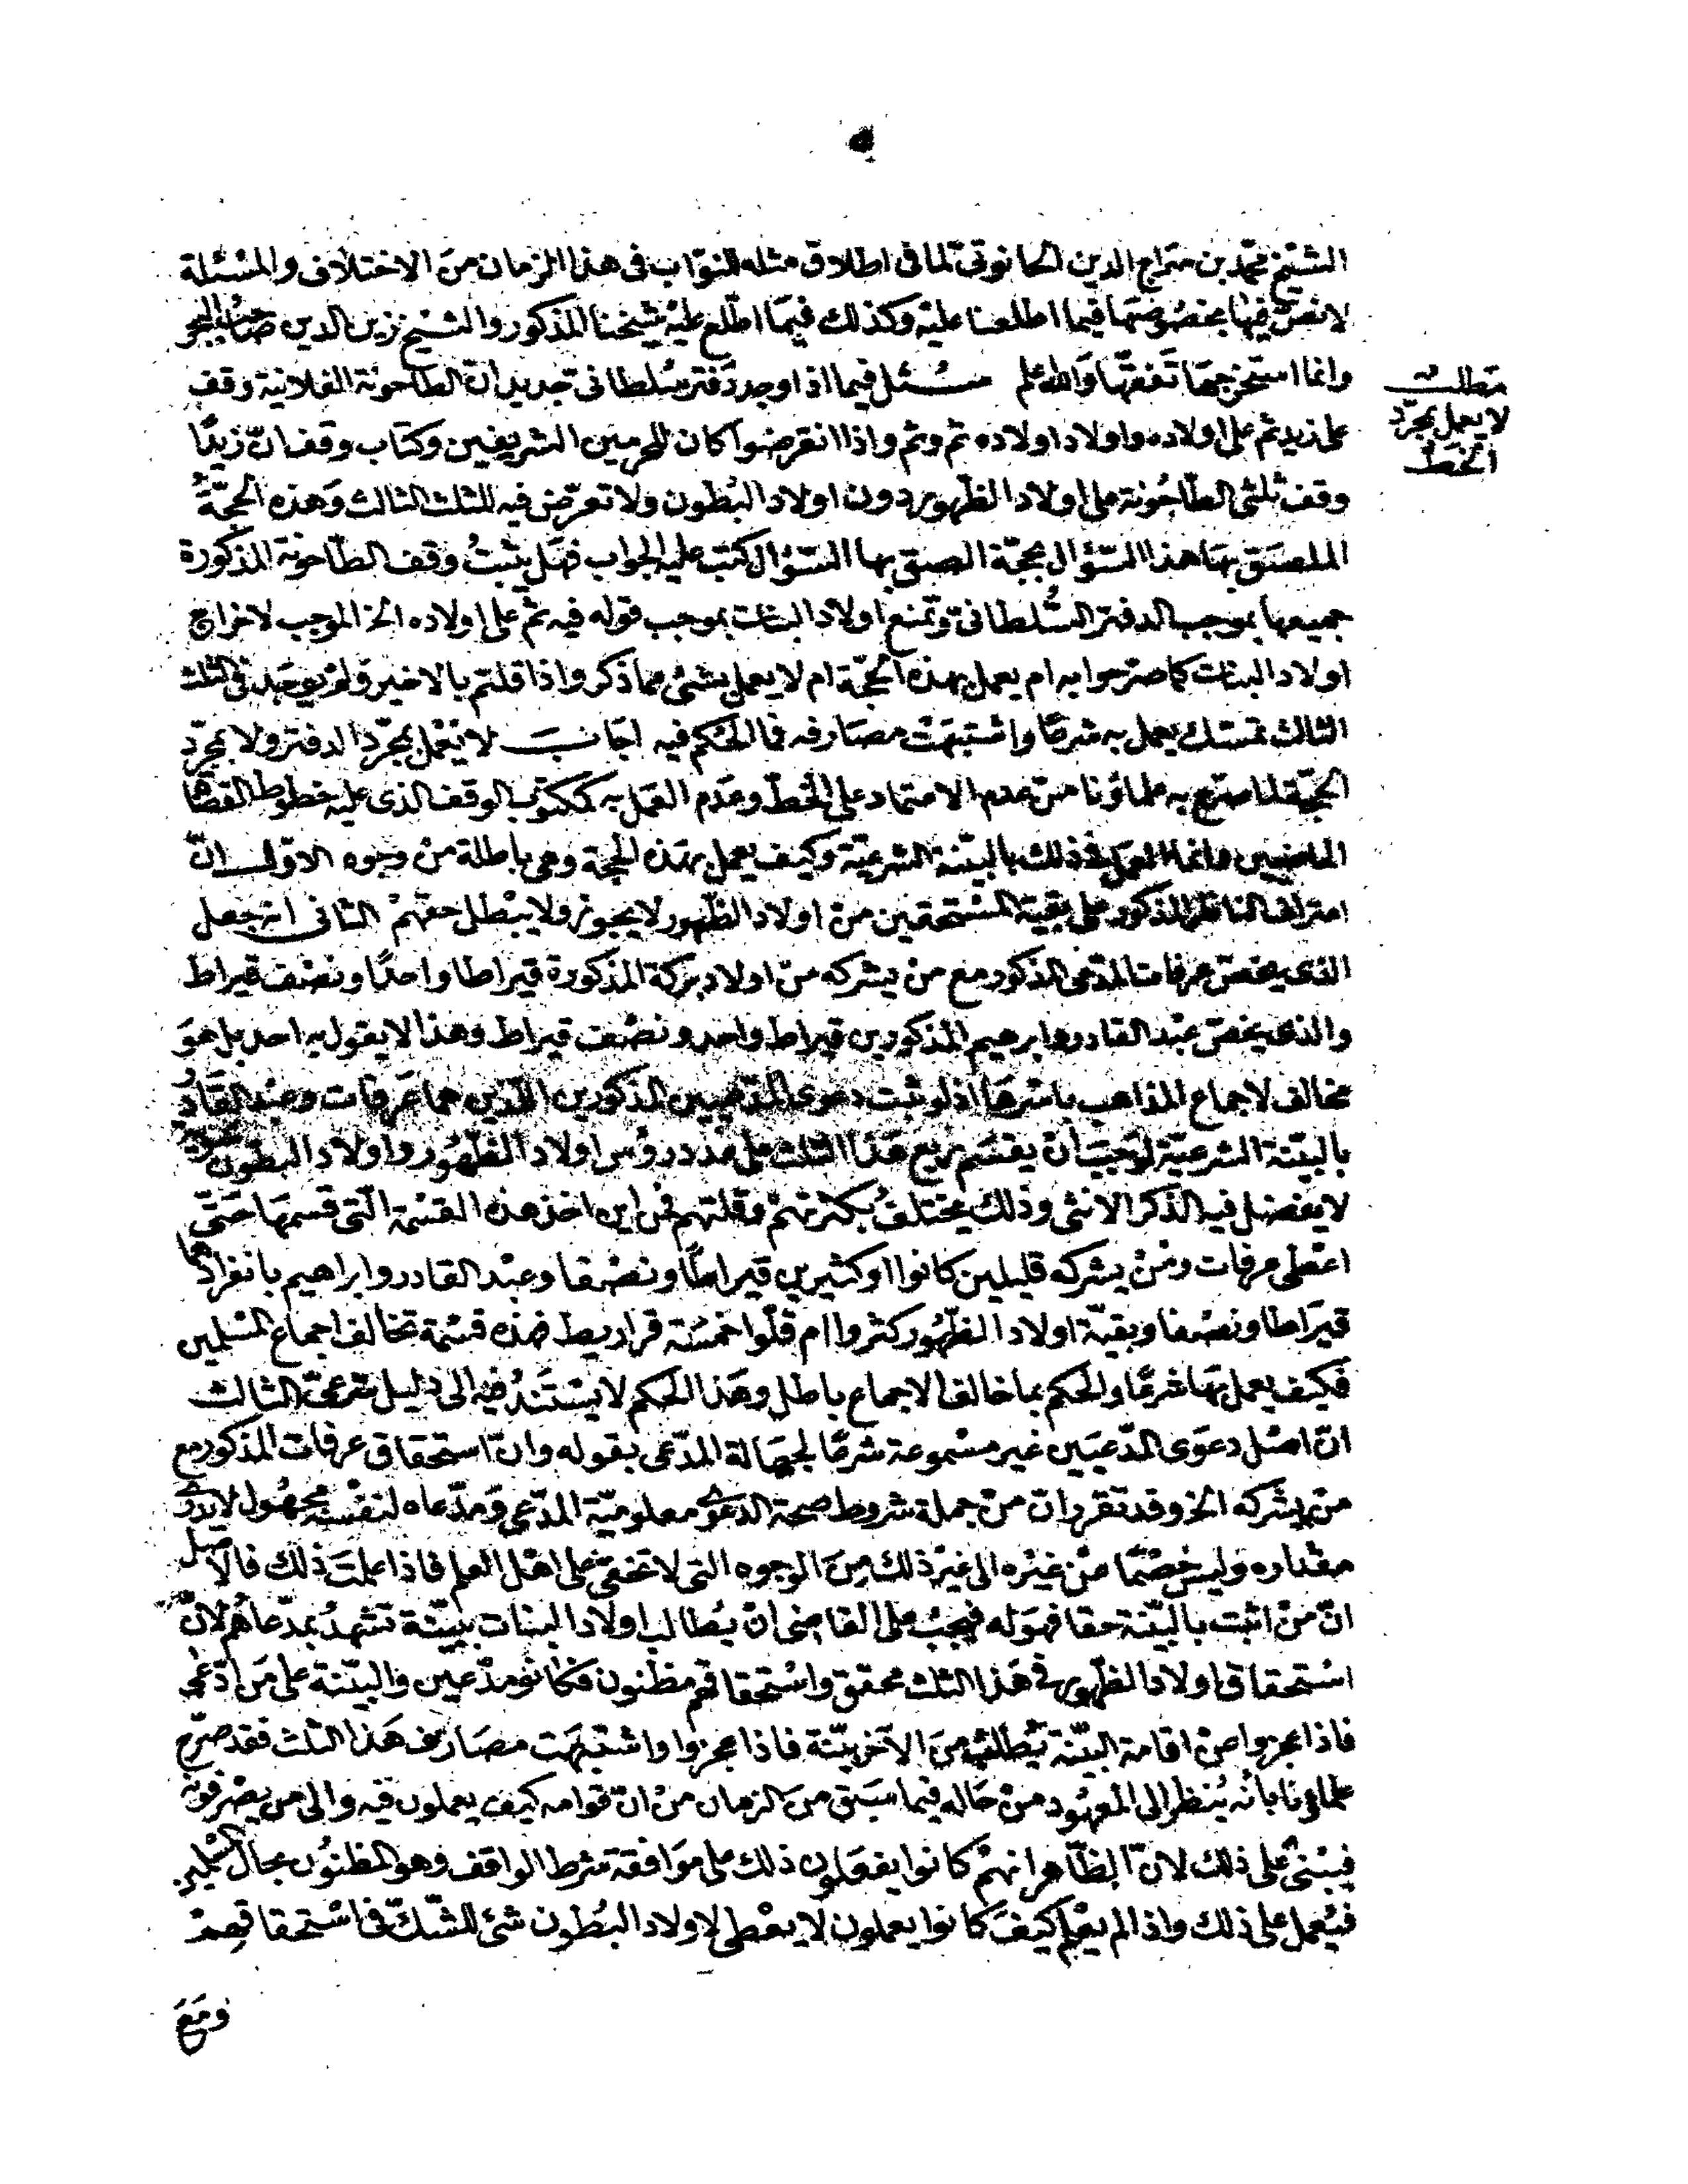 الشيخ محمد بن سراج الدين الحانوتي لما في اطلاق مثله للنواب في هذا الزمان من الاختلاف والمسئلة
لا نص فيها بخصوصها فيما اطلعنا عليه وكذلك فيما اطلع عليه شيخنا المذكور والشيخ زين الدين صاحب البحر
وانما استخرجها تفقها والله اعلم سئل فيما اذا وجد دفتر سلطاني جديد ان الطاحونة الفلانية وقف
على زيد ثم على اولاده واولاد اولاده ثم وثم واذا انقرضوا كان للحرمين الشريفين وكتاب وقف ان زيدا
وقف ثلثي الطاحونة على اولاد الظهور دون اولاد البطون ولا تعرض فيه للثلث الثالث وهذه الحجة
الملصق بها هذا السؤال بحجة الصق بها السؤال كتب عليه الجواب فهل يثبت وقف الطاحونة المذكورة
جميعها بموجب الدفتر السلطاني وتمنع اولاد البنات بموجب قوله فيه ثم على اولاده الخ الموجب لاخراج
اولاد البنات كما صرحوا به ام يعمل بهذه الحجة ام لا يعمل بشئ مما ذكر واذا قلتم بالاخير ولم يوجد في الثلث
الثالث تمسك يعمل به شرعا واشتبهت مصارفه فما الحكم فيه اجاب لا يعمل بمجرد الدفتر ولا بمجرد
الحجة لما صرح به علماؤنا من عدم الاعتماد على الخط وعدم العمل به كمكتوب الوقف الذي عليه خطوط القضاة
الماضيين وانما العمل في ذلك بالبينة الشرعية وكيف يعمل بهذه الحجة وهي باطلة من وجوه الاول ان
اعتراف الناظر المذكور على بقية المستحقين من اولاد الظهور لا يجوز ولا يبطل حقهم الثاني انه جعل
الذي يخص عرفات المدعي المذكور مع من يشركه من اولاد بركة المذكورة قيراطا واحدا ونصف قيراط
والذي يخص عبد القادر وابرهيم المذكورين قيراط واحد ونصف قيراط وهذا لا يقول به احد بل هو
مخالف لاجماع المذاهب باسرها اذ لو ثبت دعوى المدعيين المذكورين اللذين هما عرفات وعبد القادر
بالبينة الشرعية لوجب أن يقسم ريع هذا الثلث على عدد رؤس اولاد الظهور واولاد البطون
لا يفضل فيه الذكر الانثى وذلك يختلف بكثرتهم وقلتهم فمن اين اخذ هذه القسمة التي قسمها حتى
اعطى عرفات ومن يشركه قليلين كانوا او كثيرين قيراطا ونصفا وعبد القادر وابراهيم بانفرادهما
قيراطا ونصفا وبقية اولاد الظهور كثروا ام قلوا خمسة قراريط فهذه قسمة تخالف اجماع المسلمين
فكيف يعمل بها شرعا والحكم بما خالف الاجماع باطل وهذا الحكم لا يستند فيه الى دليل شرعي الثالث
ان اصل دعوى المدعيين غير مسموعة شرعا لجهالة المدعى بقوله وان استحقاق عرفات المذكور مع
من يشركه الخ وقد تقرر ان من جملة شروط صحة الدعوى معلومية المدعى ومدعاه لنفسه مجهول لا يدرى
مقداره وليس خصما عن غيره الى غير ذلك من الوجوه التي لا تخفى على اهل العلم فاذا علمت ذلك فالاصل
ان من اثبت بالبينة حقا فهو له فيجب على القاضي ان يطالب اولاد البنات ببينة تشهد بمدعاهم لان
استحقاق اولاد الظهور في هذا الثلث محقق واستحقاقهم مظنون فكانو مدعيين والبينة على من ادعى
فاذا عجزوا عن اقامة البينة يطلب من الآخر بينة فاذا عجزوا واشتبهت مصاريف هذا الثلث فقد صرح
علماؤنا بأنه ينظر الى المعهود من حاله فيما سبق من الزمان من ان قوامه كيف يعملون فيه والى من يصرفونه
فيبنى على ذلك لان الظاهر انهم كانوا يفعلون ذلك على موافقة شرط الواقف وهو المظنون بحال المسلمين
فيعمل على ذلك واذا لم يعلم كيف كانوا يعملون لا يعطى لاولاد البطون شئ للشك في استحقاقهم
ومع
مطلب
لا يعمل بمجرد
الخط